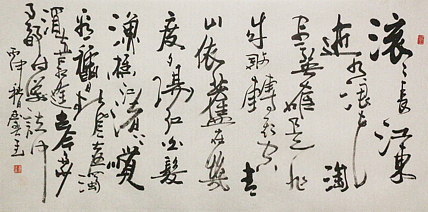 滚滚长江东
逝水浪花淘
尽英雄是非
成败转头空青
山依旧在几
度夕阳红白发
渔樵江渚上惯
看秋月春风一壶浊
酒喜相逢古今多
少事都付笑谈中
丙申